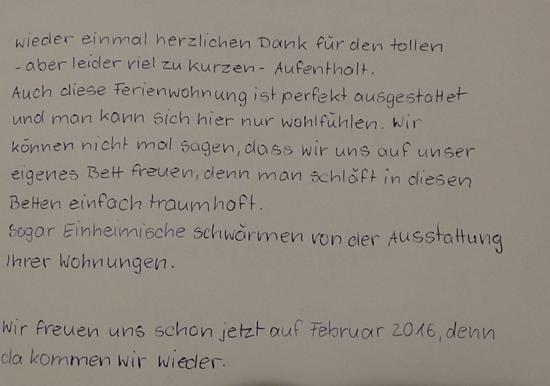 wieder einmal herzlichen Dank für den tollen
- aber leider viel zu kurzen - Aufenthalt.
Auch diese Ferienwohnung ist perfekt ausgestattet
und man kann sich hier nur wohlfühlen. Wir
können nicht mal sagen, dass wir uns auf unser
eigenes Bett freuen, denn man schläft in diesen
Betten einfach traumhaft.
Sogar Einheimische schwärmen von der Ausstattung
Ihrer Wohnungen.
Wir freuen uns schon jetzt auf Februar 2016, denn
da kommen wir wieder.